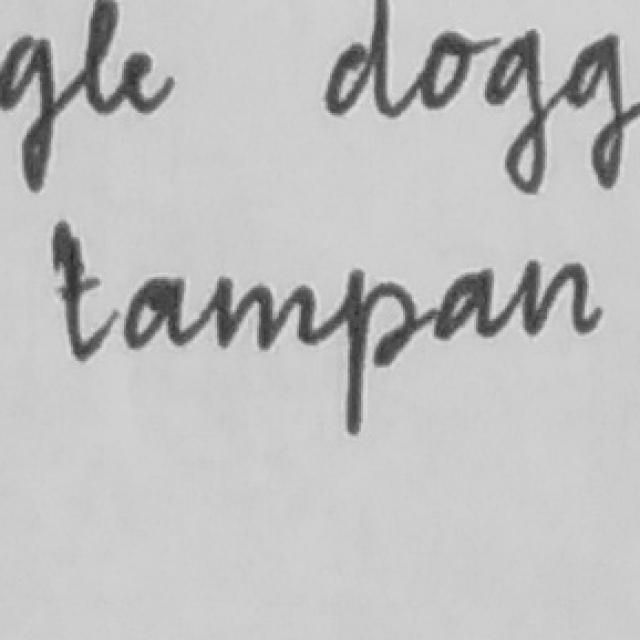 gle dogg
tampan